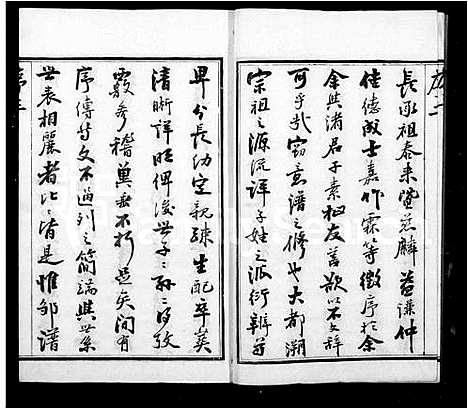 序二
長承祖泰來暨茲麟益謙仲
佳德成士嘉作霖等徵序於余
余與諸君子素相友善欲以不文辭
可乎哉竊意譜之修也大都溯
宗祖之源流詳子姓之派衍辨尊
卑分長幼定親疎生配卒葬
清晰詳明俾後世子二孫二得攷
覈參稽冀垂不朽是矣間有
序傳等文不過列之簡端與世系
世表相麗者比二皆是惟鄒譜
序三